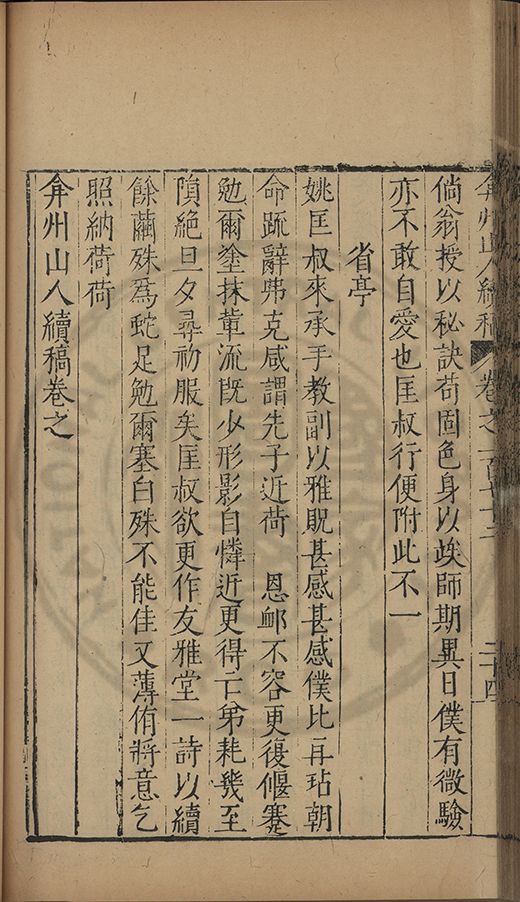 弇州山人續稿 卷之一百七十三 二十四
倘翁授以秘訣苟固色身以竢師期異日僕有微驗
亦不敢自愛也匡叔行便附此不一
省亭
姚匡叔來承手教副以雅貺甚感甚感僕比再玷朝
命䟽辭弗克咸謂先子近荷 恩䘏不容更復偃蹇
勉爾塗抹輩流旣少形影自憐近更得亡弟耗幾至
隕絶旦夕尋初服矣匡叔欲更作友雅堂一詩以續
餘藺殊爲蛇足勉爾塞白殊不能佳又薄侑將意乞
照納荷荷
弇州山人續稿卷之